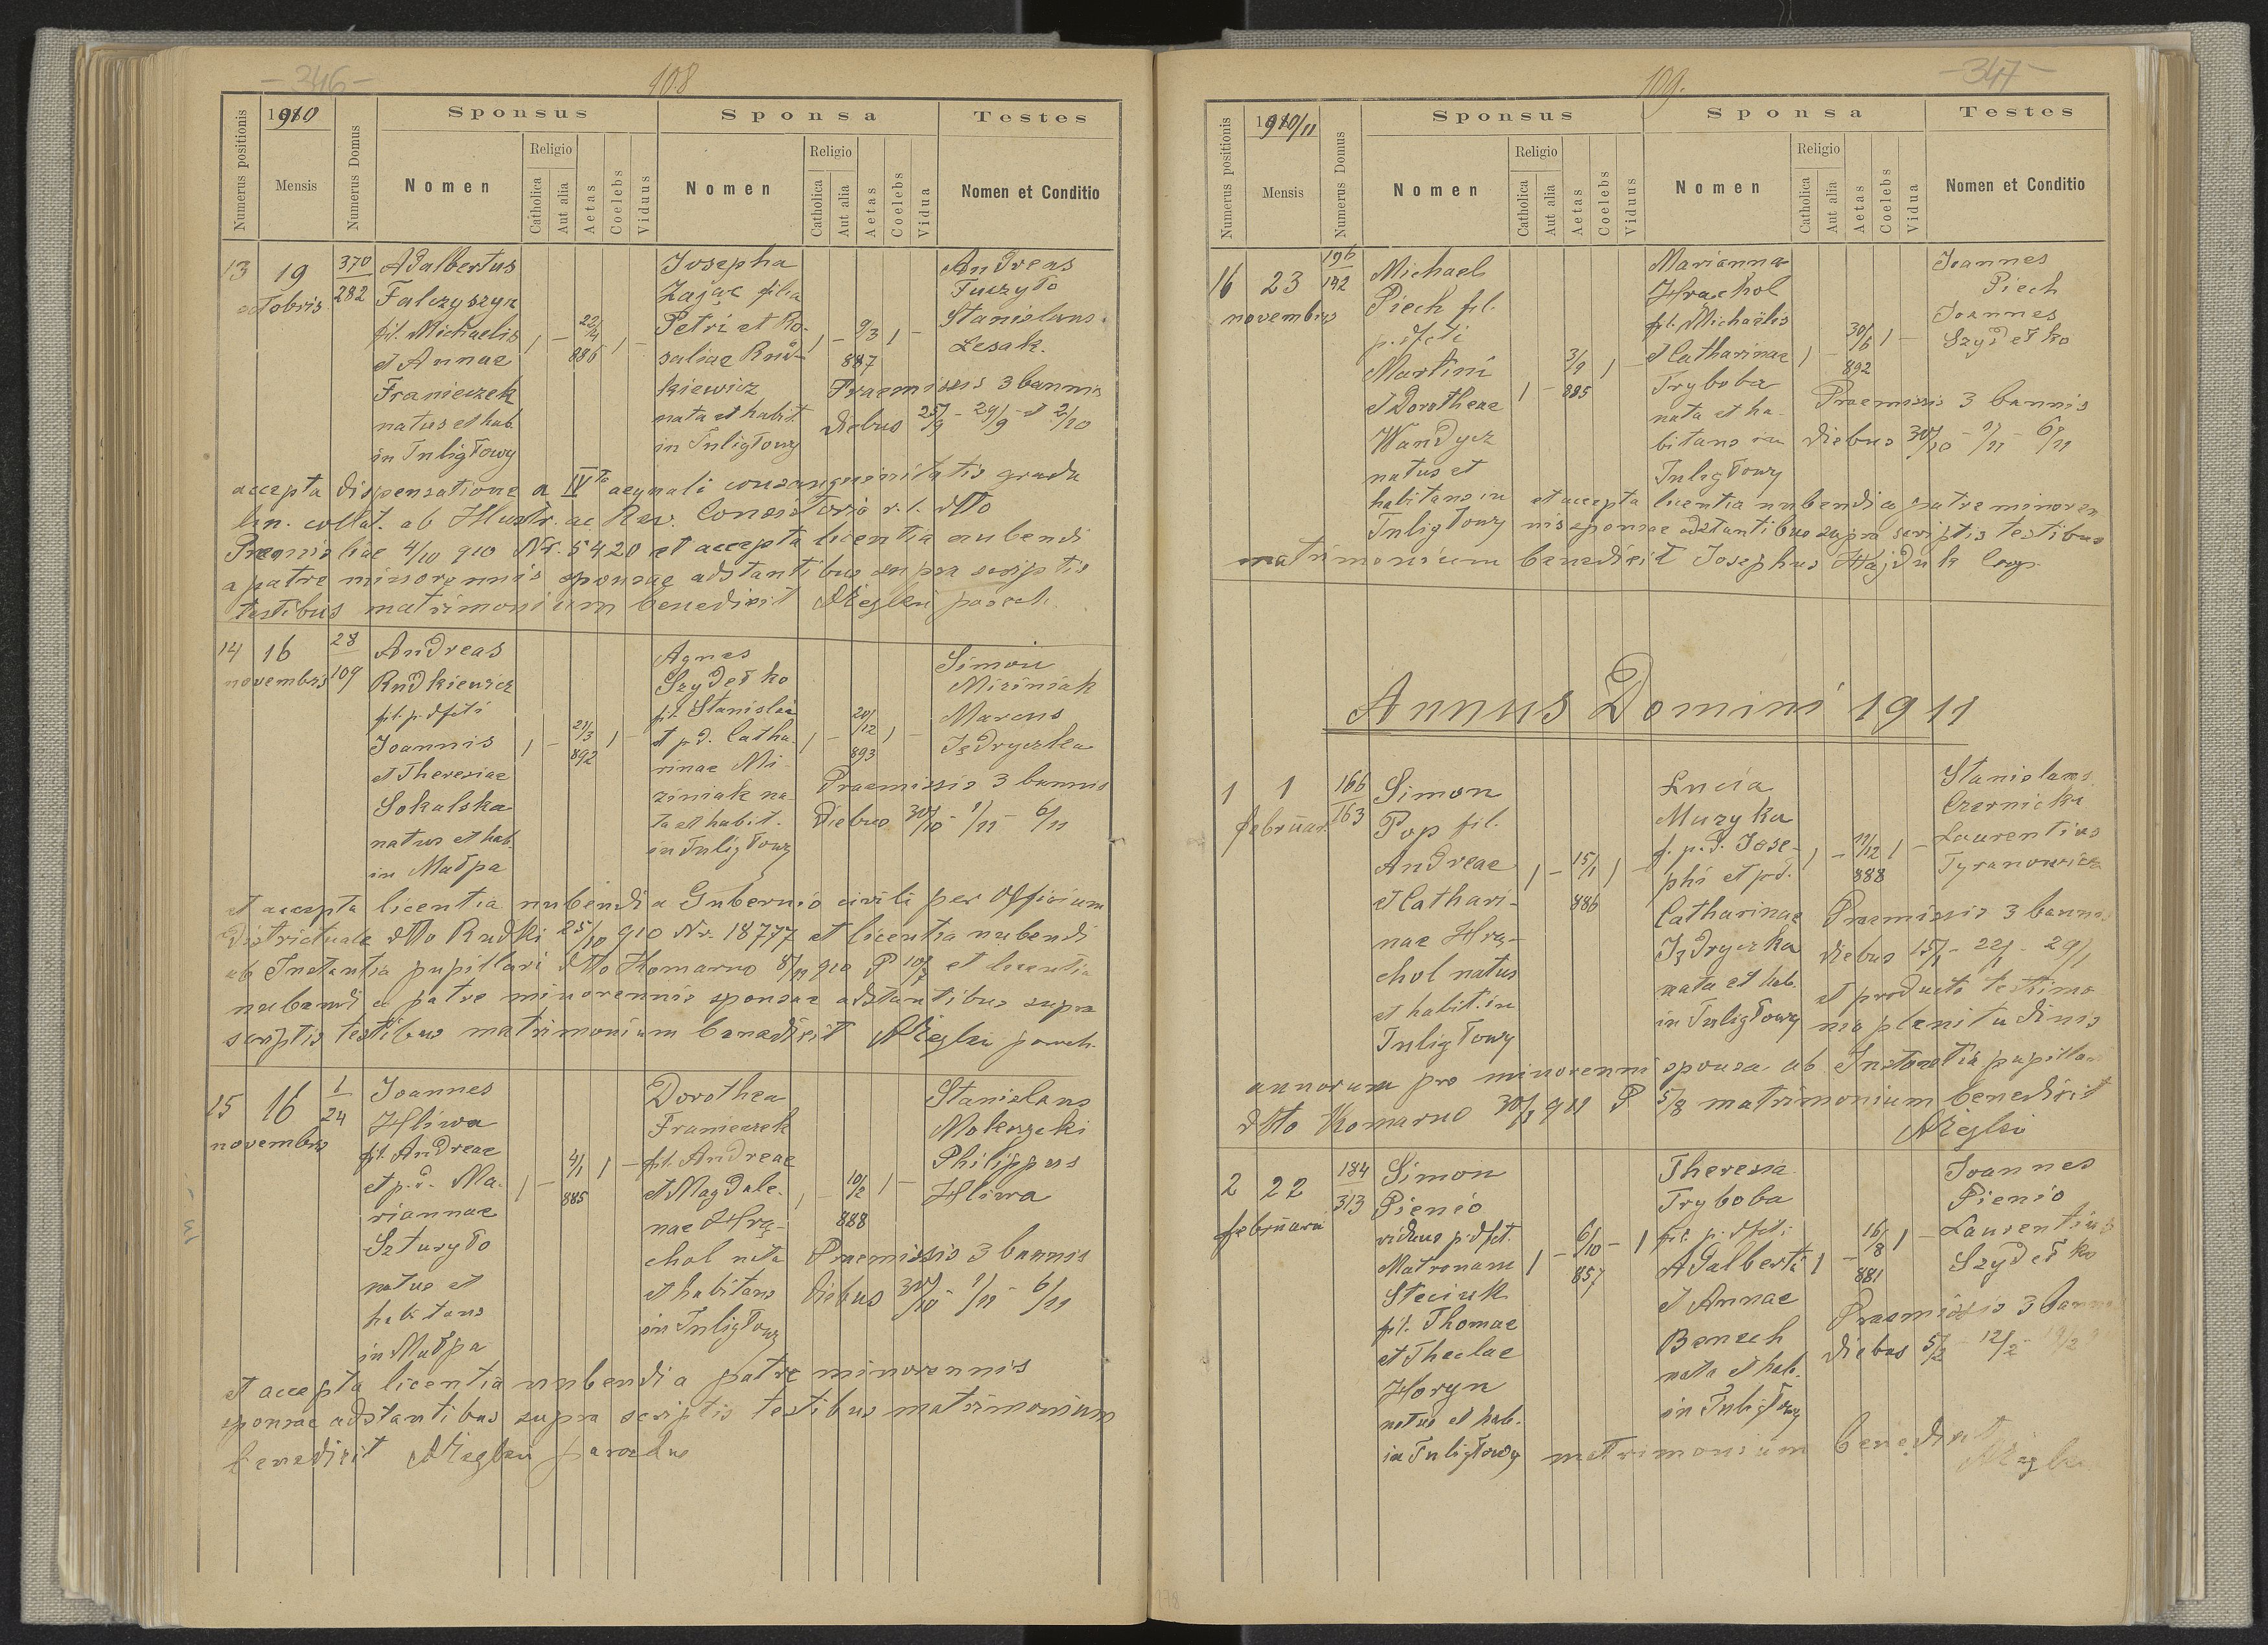 - 246 -
108
1910
Numerus positionis
Mensis
Numerus Domus
Sponsus
Nomen
Religio
Catholica
Aut alia
Aetas
Coelebs
Viduus
Sponsa
Nomen
Religio
Catholica
Aut alia
Aetas
Coelebs
Vidua
Testes
Nomen et Conditio
13
19
octobris
370
282
Adalbertus
Falczyszyn
fil. Michaelis
et Annae
Franieczek
natus et hab.
in Tuligłowy
1 - 22/4 886 1 -
Josepha
Zając filia
Petri et Ro-
saliae Rud-
kiewicz
nata et habit.
in Tuligłowy
1 - 9/3 887 1 -
Andreas
Tuczyło
Stanislaus
Lesak.
Praemissis 3 bannis
diebus 25/9 - 29/9 et 2/10
accepta dispensatione a IVto aequali consanguinitatis gradu
lin. collat. ab Illustr. ac Rev. Consistorio r. l. dtto
Premisliae 4/10 910 Nr. 5420 et accepta licentia nubendi
a patre minorennis sponsae adstantibus supra scriptis
testibus matrimonium benedixit paroch.
14
16
novembris
28
109
Andreas
Rudkiewicz
fil. p. dfcti
Joannis
et Theresiae
Sokalska
natus et hab.
in Małpa
1 - 21/3 892 1 -
Agnes
Szydełko
fil. Stanislai
et p.d. Catha-
rinae Mi-
ziniak na-
ta et habit.
in Tuligłowy
1 - 20/12 893 1 -
Simon
Miziniak
Marcus
Jędryczka
Praemissis 3 bannis
diebus 30/10 - 1/11 - 6/11
et accepta licentia nubendi a Gubernio civili per Officium
Districtuale dtto Rudki 25/10 910 Nr. 18777 et licentia nubendi
ab Instantia pupillari dtto Komarno 8/11 910 P 10/7 et licentia
nubendi a patre minorennis sponsae adstantibus supra
scriptis testibus matrimonium benedixit paroch.
15
16
novembris
1
24
Joannes
Hliwa
fil. Andreae
et p.d. Ma-
riannae
Szturyło
natus et
habitans
in Małpa
1 - 4/1 885 1 -
Dorothea
Franieczek
fil. Andreae
et Magdale-
nae Hrą-
chol nata
et habitans
in Tuligłowy
1 - 10/2 888 1 -
Stanislaus
Mokrzycki
Philippus
Hliwa
Praemissis 3 bannis
diebus 30/10 - 1/11 - 6/11
et accepta licentia nubendi a patre minorennis
sponsae adstantibus supra scriptis testibus matrimonium
benedixit parochus
- 347 -
109.
1910/11
Numerus positionis
Mensis
Numerus Domus
Sponsus
Nomen
Religio
Catholica
Aut alia
Aetas
Coelebs
Viduus
Sponsa
Nomen
Religio
Catholica
Aut alia
Aetas
Coelebs
Vidua
Testes
Nomen et Conditio
16
23
novembris
196
142
Michael
Piech fil.
p. dfcti
Martini
et Dorotheae
Wandycz
natus et
habitans in
Tuligłowy
1 - 3/9 885 1 -
Marianna
Hrąchol
fil. Michaëlis
et Catharinae
Tryboba
nata et ha-
bitans in
Tuligłowy
1 - 30/6 892 1 -
Joannes
Piech
Joannes
Szydełko
Praemissis 3 bannis
diebus 30/10 - 1/11 - 6/11
et accepta licentia nubendi a patre minoren
nis sponsae adstantibus supra scriptis testibus
matrimonium benedixit Josephus Hajduk Coop.
Annus Domini 1911
1
1
februar.
166
163
Simon
Pop fil.
Andreae
et Cathari-
nae Hrą-
chol natus
et habit. in
Tuligłowy
1 - 15/1 886 1 -
Lucia
Muzyka
f. p.d. Jose-
phi et p.d.
Catharinae
Jędryczka
nata et hab.
in Tuligłowy
1 - 11/12 888 1 -
Stanislaus
Czernicki
Laurentius
Tyranowicz
Praemissis 3 bannis
diebus 15/1 - 22/1 - 29/1
et producto testimo
nio plenitudinis
annorum pro minorenni sponsa ab Instantia pupillari
dtto Komarno 30/1 911 P 5/8 matrimonium benedixit
2
22
februarii
184
313
Simon
Pienio
viduus p. dfct.
Matronam
Steciuk
fil. Thomae
et Theclae
Horyn
natus et hab.
in Tuligłowy
1 - 6/10 857 - 1
Theresia
Tryboba
fil. p. dfcti
Adalberti
et Annae
Benech
nata et hab.
in Tuligłowy
1 - 16/8 881 1 -
Joannes
Pienio
Laurentius
Szydełko
Praemissis 3 bannis
diebus 5/2 - 12/2 - 19/2
matrimonium benedixit